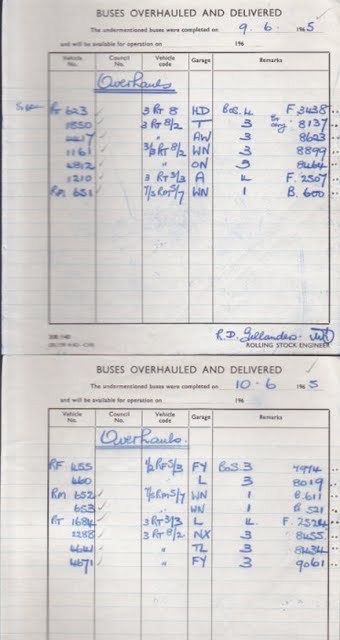 BUSES OVERHAULED AND DELIVERED
The undermentioned buses were completed on 9. 6. 1965
and will be available for operation on 196
Vehicle No. Council No. Vehicle code Garage Remarks
Overhauls
RT 623 ✓ 3 RT 8 HD BoS. 4 F. 3438
1850 ✓ 3 RT 8/2 T 3 8137
4417 ✓ " AW 3 8623
1161 ✓ 3/3 RT 8/2 WN 3 8899
4812 ✓ " ON 3 8464
1210 ✓ 3 RT 3/3 A 4 F. 2507
RM 651 ✓ 1/2 RM 5/7 WN 1 B. 600
ROLLING STOCK ENGINEER
BUSES OVERHAULED AND DELIVERED
The undermentioned buses were completed on 10. 6 1965
and will be available for operation on 196
Vehicle No. Council No. Vehicle code Garage Remarks
Overhauls.
RF 455 ✓ 1/2 RF 5/3 FY BoS. 3 7974
460 ✓ " L 3 8019
RM 652 ✓ 1/2 RM 5/7 WN 1 B. 611
653 ✓ " WN 1 B 521
RT 1684 ✓ 3 RT 3/3 L 4. F. 2524
2288 ✓ 3 RT 8/2 NX 3 8455
4641 ✓ " TL 3 8434
4671 ✓ " FY 3 9061